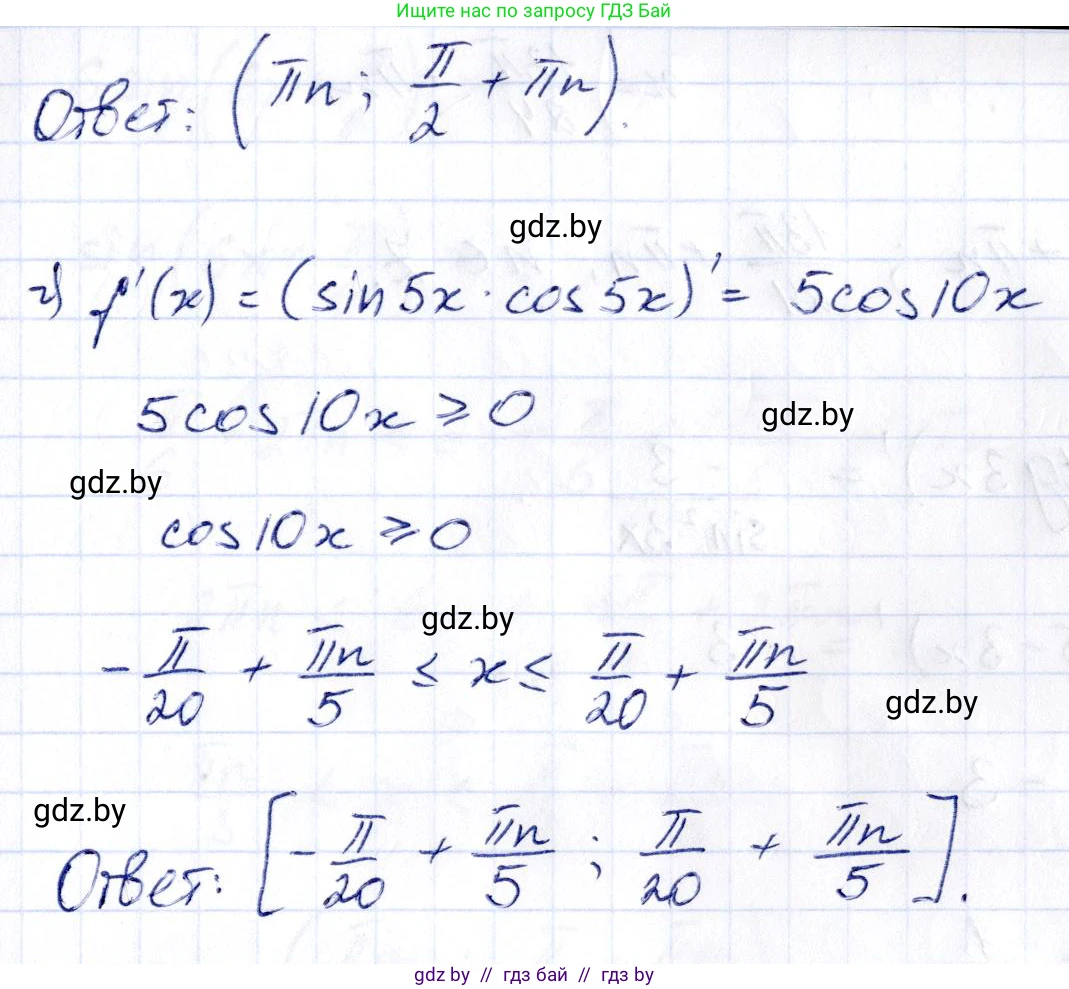 Ищите нас по запросу ГДЗ Бай
Ответ: (πn; π/2 + πn).
gdz.by
г) f'(x) = (sin5x · cos5x)' = 5cos10x
5cos10x ⩾ 0
gdz.by
gdz.by
cos10x ⩾ 0
gdz.by
-π/20 + πn/5 ≤ x ≤ π/20 + πn/5
gdz.by
gdz.by
Ответ: [-π/20 + πn/5 ; π/20 + πn/5].
gdz.by // гдз бай // гдз by